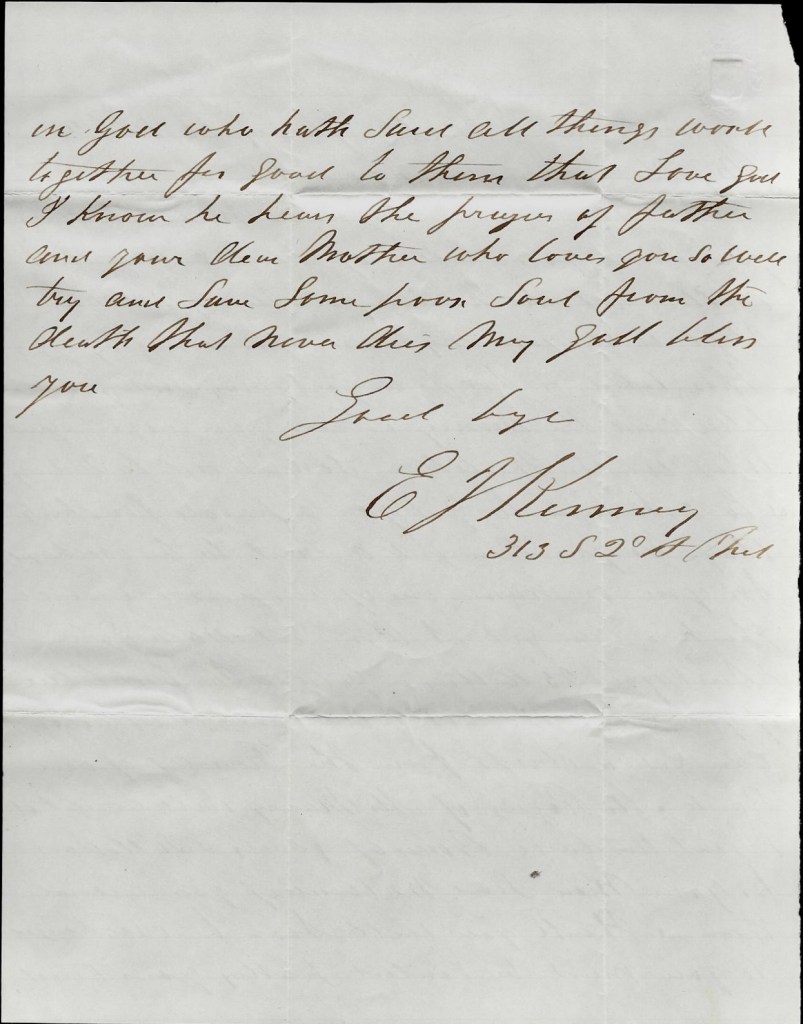 in God who hath Said all things work
together for good to them that Love god
I Know he hears the prayers of father
and your dear Mother who loves you so well
try and Save Some poor Soul from the
death that never dies May god bless
you
Good bye
E J Kenney
313 S 2º St Phil